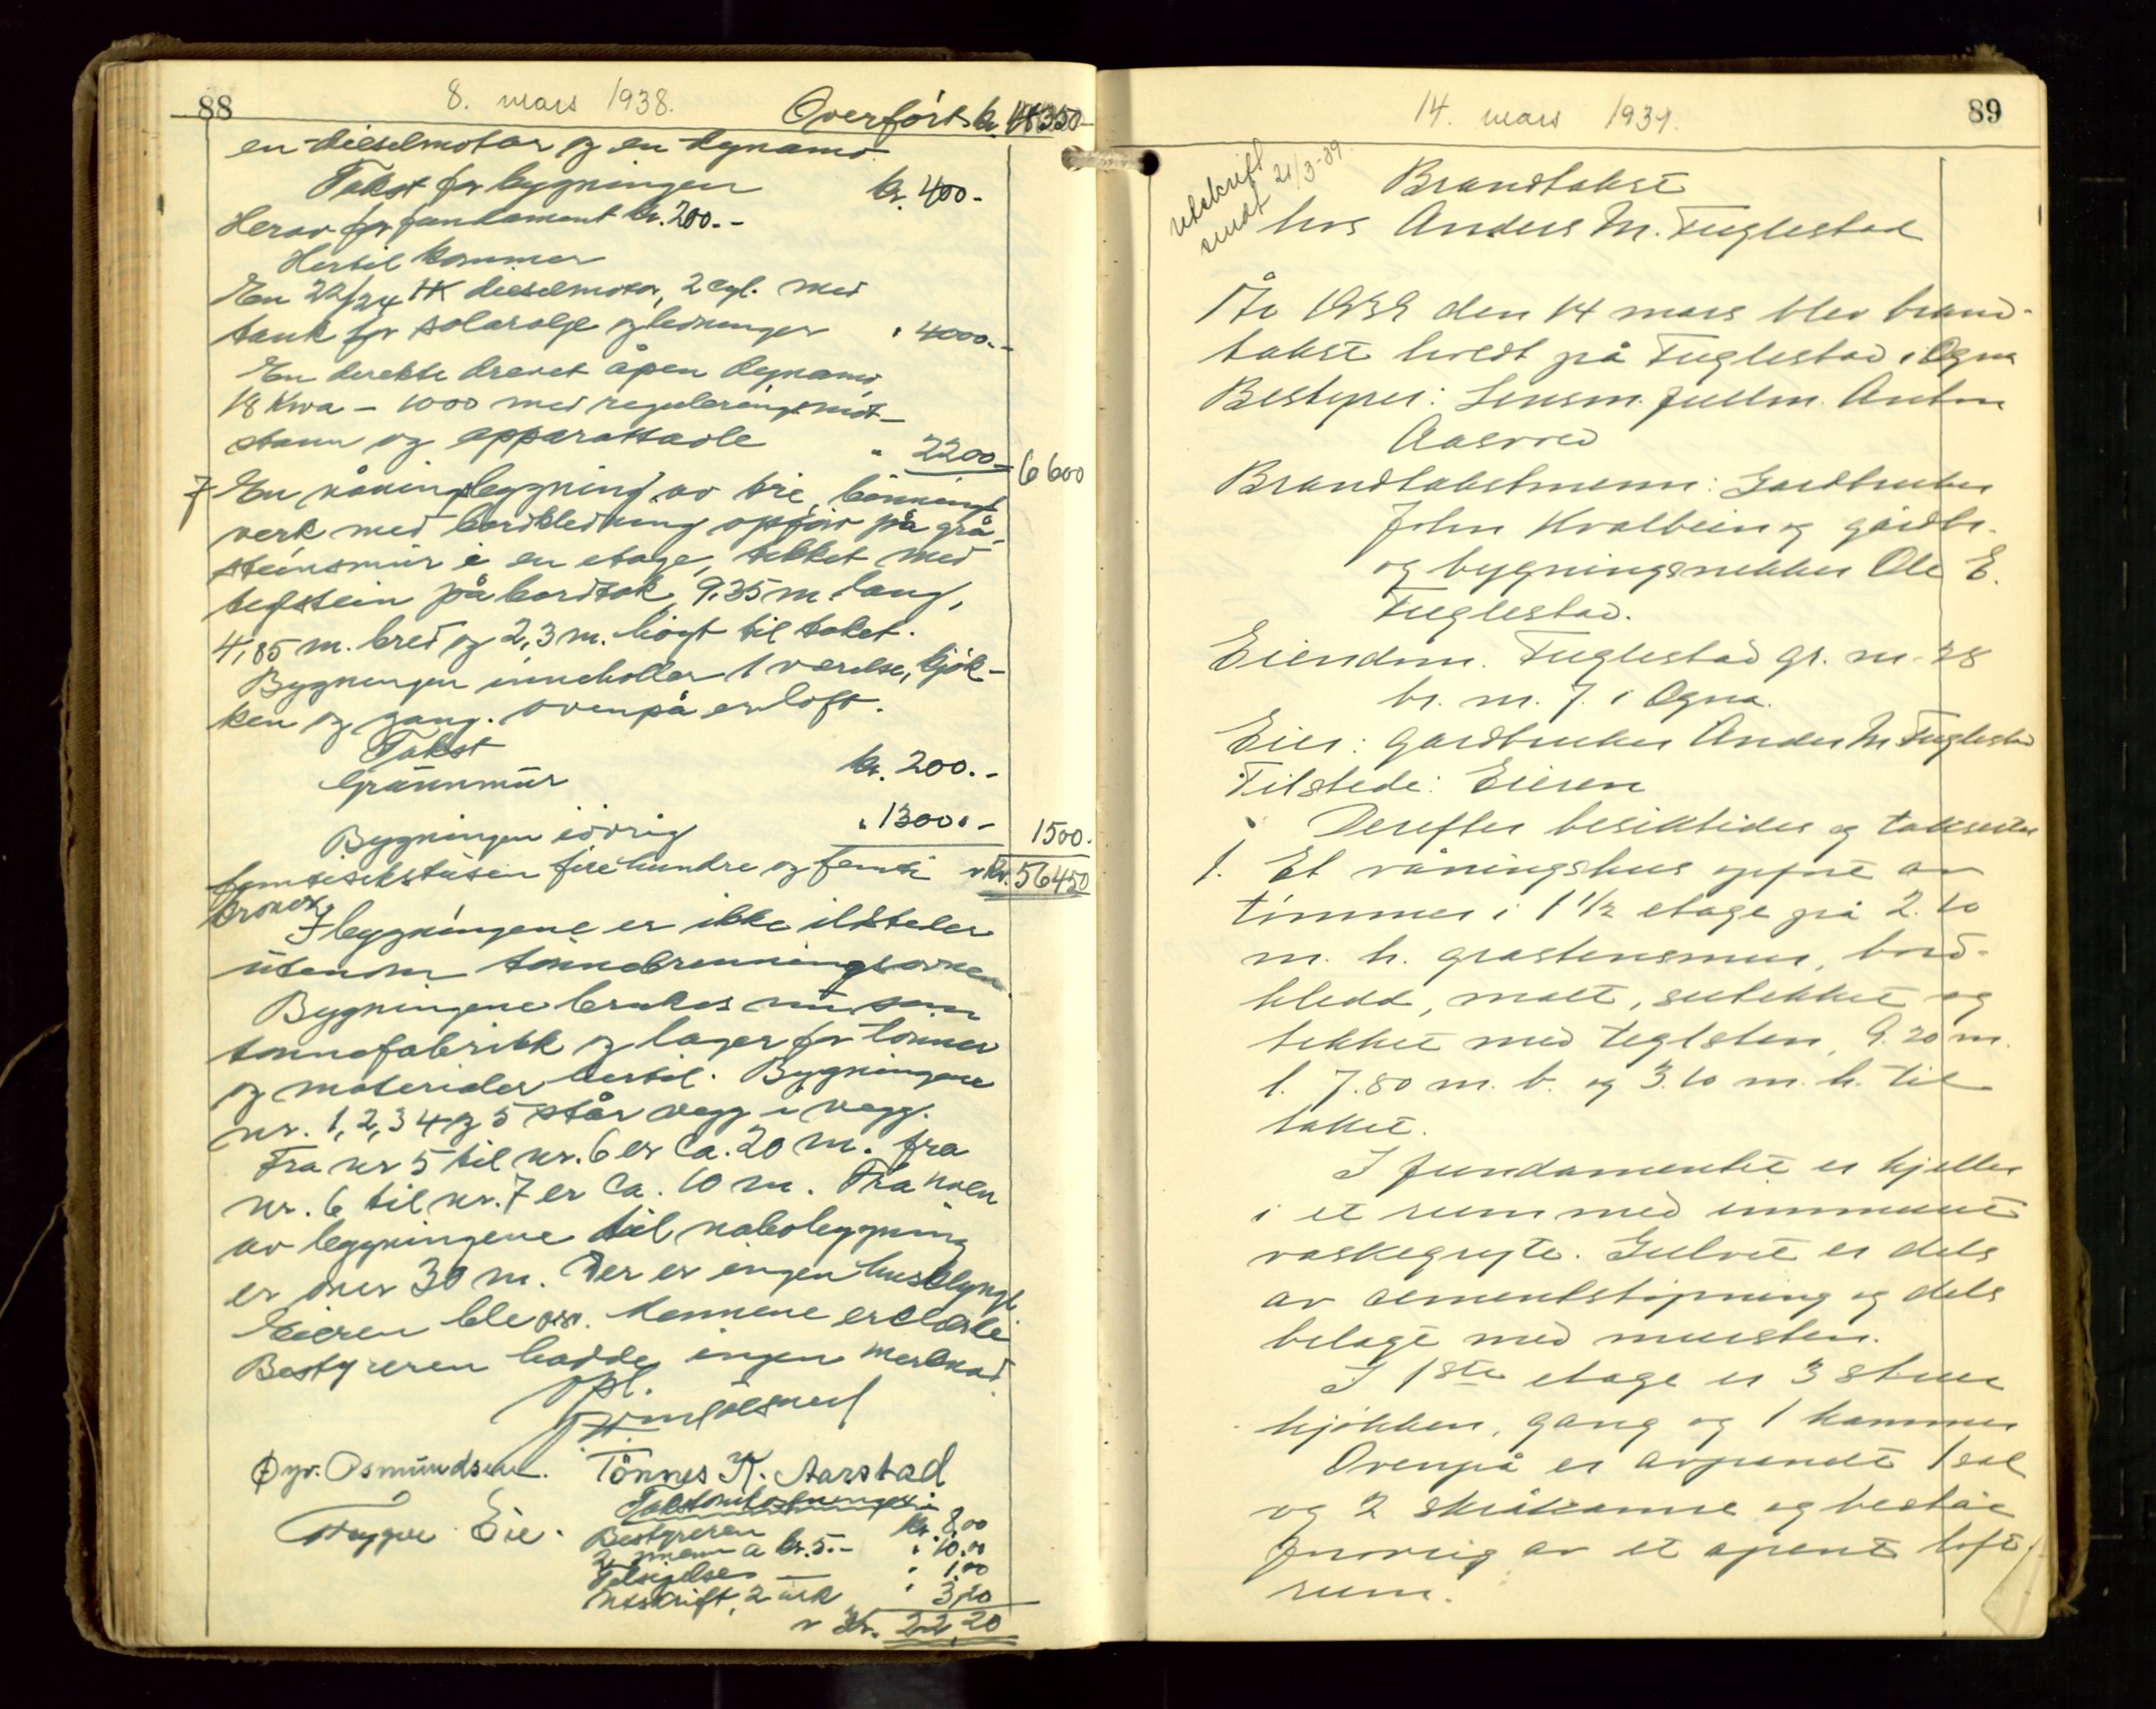 88
8. mars 1938.
Overført kr. 48350-
en dieselmotor og en dynamo.
Takst for bygningen kr. 400.-
Herav for fundament kr. 200.-
Hertil kommer
En 22/24 HK dieselmotor, 2 cyl. med
tank for solarolje og ledninger " 4000.-
En direkte drevet åpen dynamo
18 Kwa - 1000 med reguleringsmot-
stann og apparattavle " 2200.- 6600
7 En våningsbygning av tre, binnings-
verk med bordkledning opført på grå-
steinsmur i en etage, tekket med
teglstein på bordtak, 9,35 m. lang,
4,85 m. bred og 2,3 m. høgt til taket.
Bygningen inneholler 1 værelse, kjøk-
ken og gang. Ovenpå er loft.
Takst
Grunnmur kr. 200.-
Bygningen iøvrig " 1300.- 1500.
femtisekstusen firehundre og femti kr. 56450
kroner.
I bygningene er ikke ilsteder
utenom tønnebrenningsovnen
Bygningene brukes nu som
tønnefabrikk og lager for tønner
og materialer hertil. Bygningene
nr. 1, 2, 3 4 og 5 står vegg i vegg.
Fra nr 5 til nr. 6 er ca. 20 m. fra
nr. 6 til nr. 7 er ca. 10 m. Fra noen
av bygningene til nabobygning
er over 30 m. Der er ingen husklynge
Eieren ble mennene erklærte
Bestyreren hadde ingen merknad.
Opl.
Oyv. Osmundsen. Tönnes K. Aarstad
Trygve Eie.
Takstomkostninger:
Bestyreren kr. 8,00
2 menn a kr. 5.- " 10,00
Tilsigelser — " 1,00
Utskrift, 2 ark " 3,20
Kr. 22,20
89
14. mars 1939.
Utskrift
sendt 21/3-39.
Brandtakst
hos Anders M. Fuglestad
År 1939 den 14 mars blev brand-
takst holdt på Fuglestad i Ogna
Bestyrer: Lensm. fullm. Anton
Aasved
Brandtakstmenn: Gardbruker
John Kvalbein og gårdbr.
og bygningsnekker Ole E.
Fuglestad.
Eiendom. Fuglestad gr. nr. 28
br. nr. 7. i Ogna.
Eier: Gardbruker Anders M Fuglestad
Tilstede: Eieren
Derefter besiktides og takserte
1. Et våningshus opført av
tømmer i 1 1/2 etage på 2.10
m. h. grastensmur, bord-
kledd, malt, sutekket og
tekket med teglsten, 9.20 m.
l. 7.80 m. b. og 3.10 m. h. til
taket.
I fundamentet er kjeller
i et rum med innmurt
vaskegryte. Gulvet er dels
av cementstøpning og dels
belagt med mursten.
I 1ste etage er 3 stuer
kjøkken, gang og 1 kammer
Ovenpå er avpanelt 1 sal
og 2 skråkamre og består
forøvrig av et åpent loft
rum.